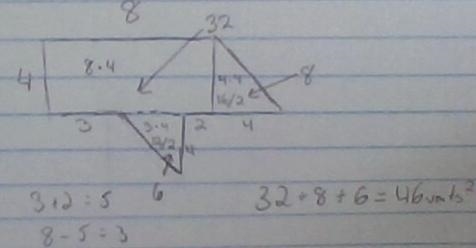 8
32
4
8·4
4·4
16/2
8
3
3·4
12/2
4
2
4
6
3+2=5
8-5=3
32+8+6=46units²